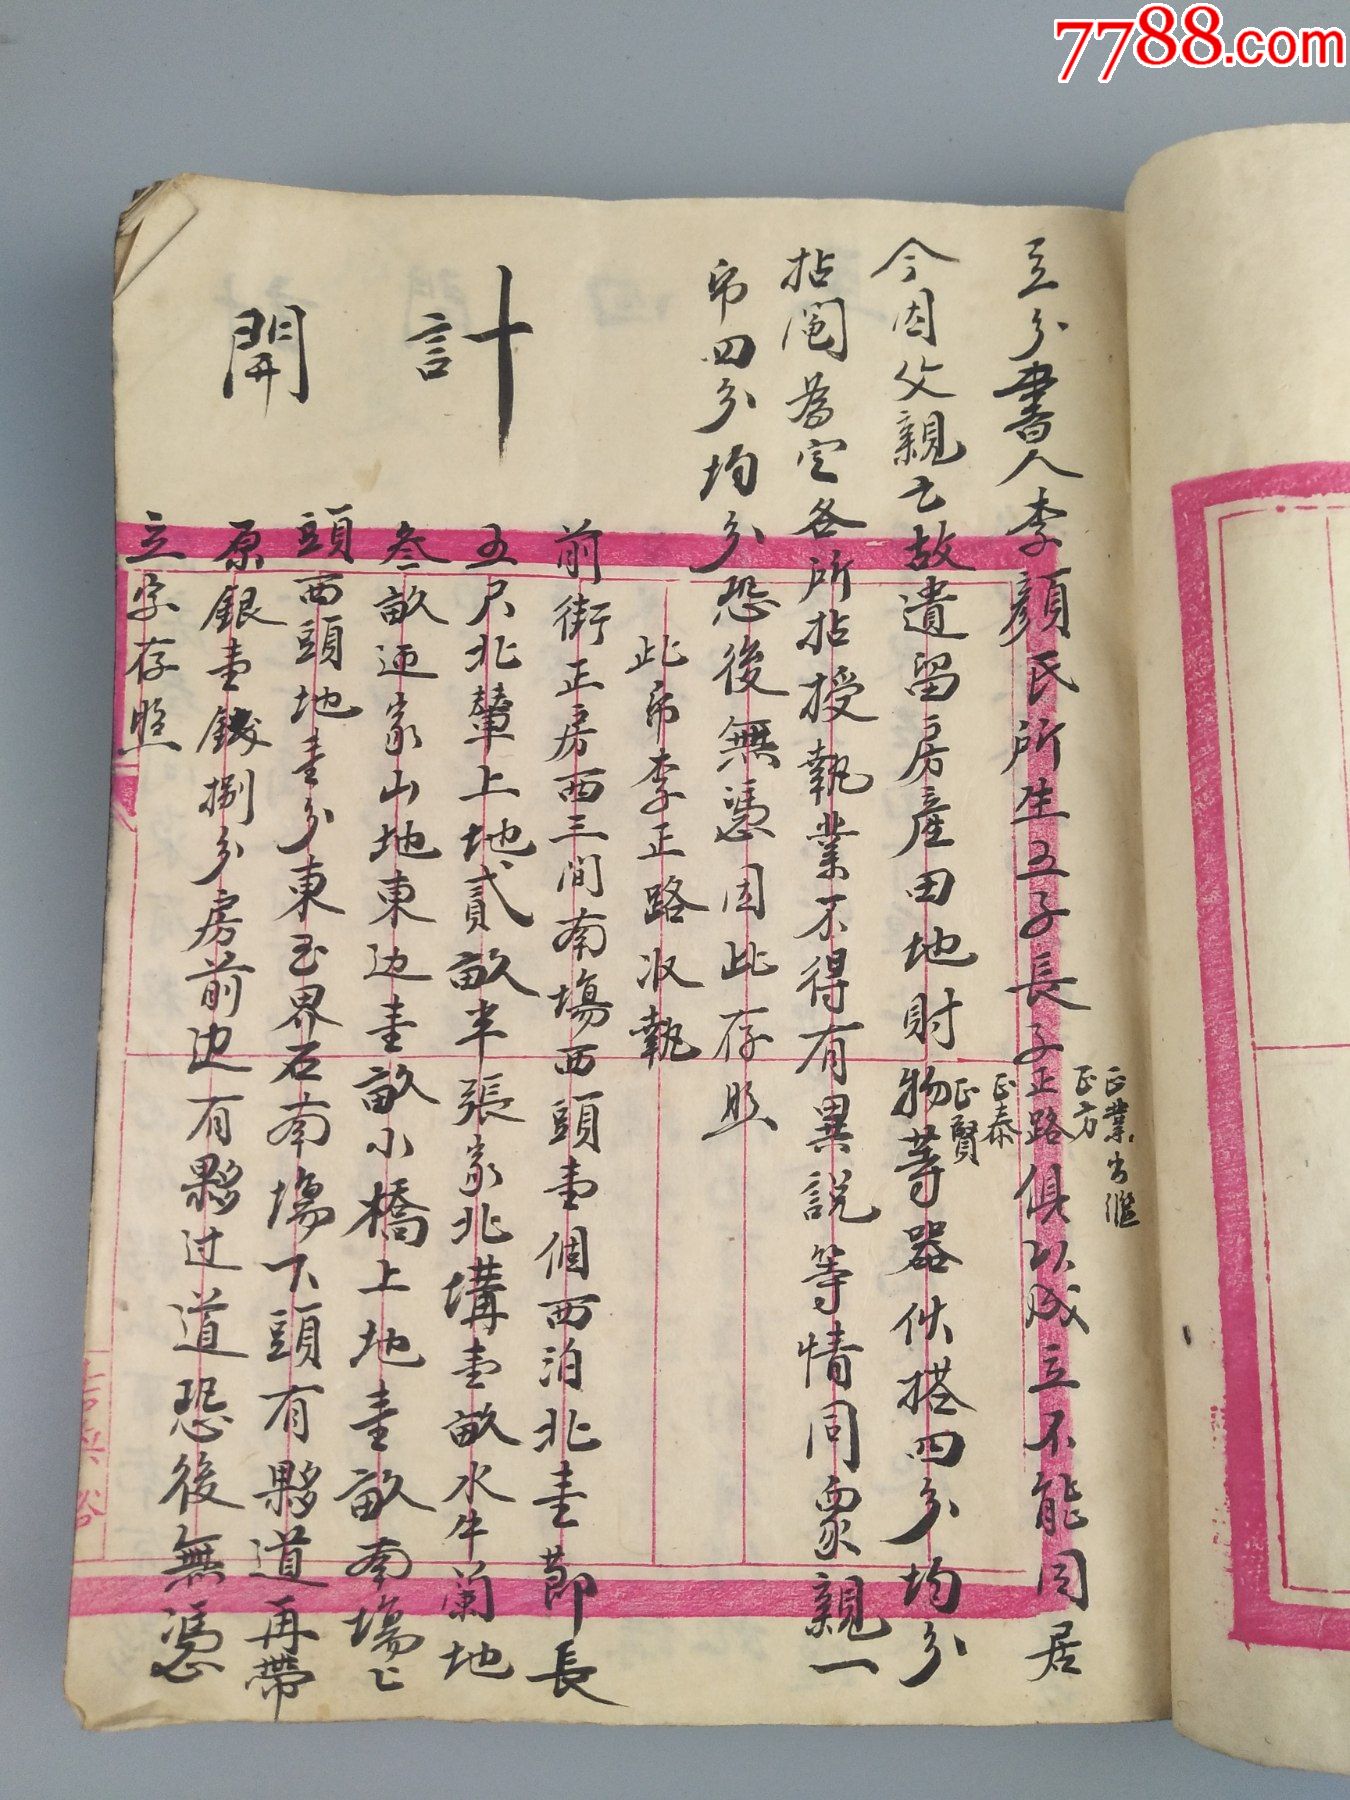 7788.com
立分書人李顏氏所生五子長子正路俱以成立不能同居
正業出繼
正方
正泰
正賢
今因父親亡故遺留房產田地財物等器伙搭四分均分
拈鬮為定各所拈授執業不得有異說等情同眾親一
帋四分均分恐後無憑因此存照
此帋李正路收執
計開
前街正房西三間南塲西頭壹個西泊北壹節長
五尺北輦上地貳畝半張家北溝壹畝水牛蘭地
叁畝迊家山地東边壹畝小橋上地壹畝南塲
頭西頭地壹分東至界石南塲下頭有夥道再帶
原銀壹錢捌分房前边有夥过道恐後無憑
立字存照